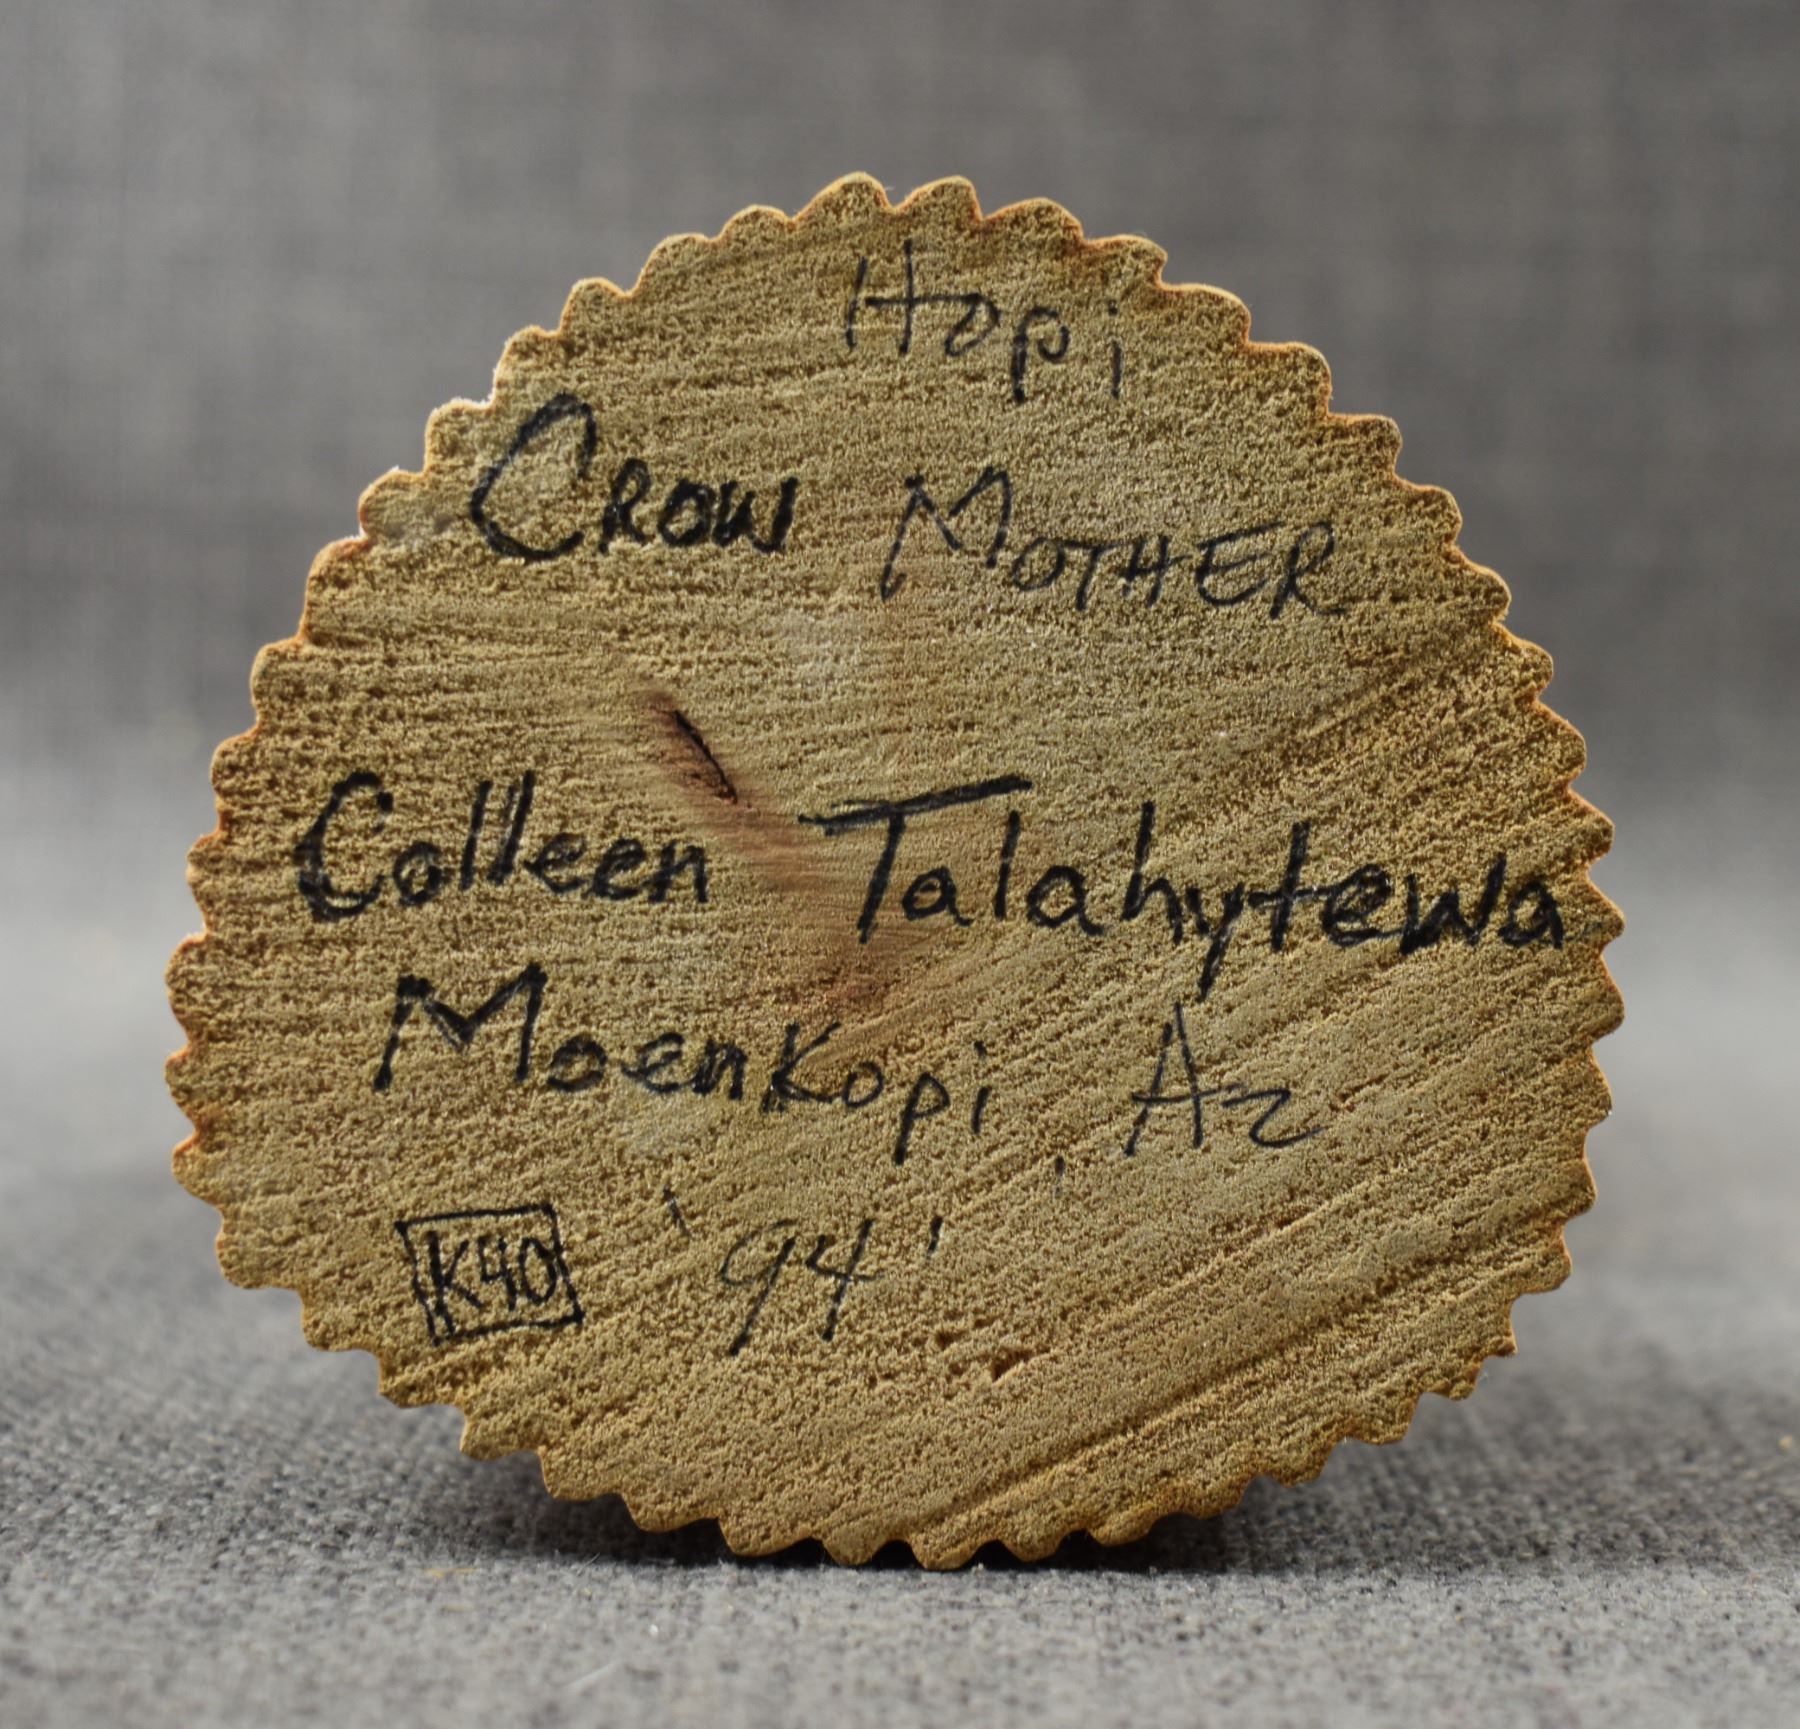 Hopi
CROW MOTHER
Colleen Talahytewa
Moenkopi, Az
K40 '94'